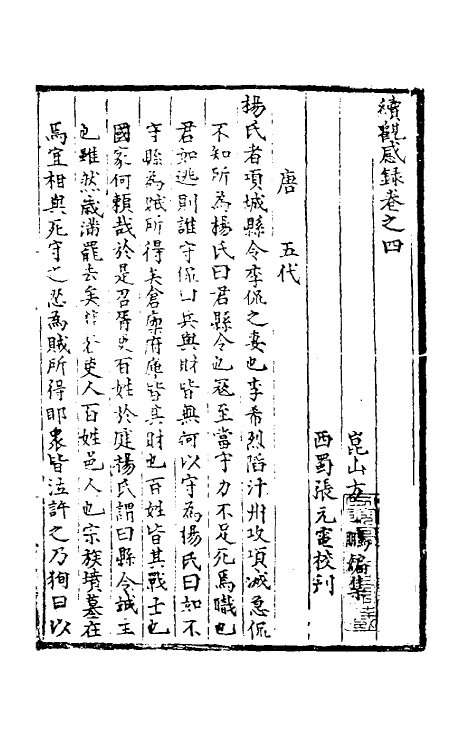 續觀感録卷之四
崑山方 鵬編集
西蜀張元電校刊
唐 五代
楊氏者項城縣令李侃之妻也李希烈陷汴州攻項城急侃
不知所為楊氏曰君縣令也寇至當守力不足死焉職也
君如逃則誰守侃曰兵與財皆無何以守為楊氏曰如不
守縣為賊所得矣倉廩府庫皆其財也百姓皆其戰士也
國家何賴哉於是召胥吏百姓於庭楊氏謂曰縣令誠主
也雖然歳滿罷去矣 吏人百姓邑人也宗族墳墓在
焉宜相與死守之忍為賊所得耶衆皆泣許之乃狥曰以